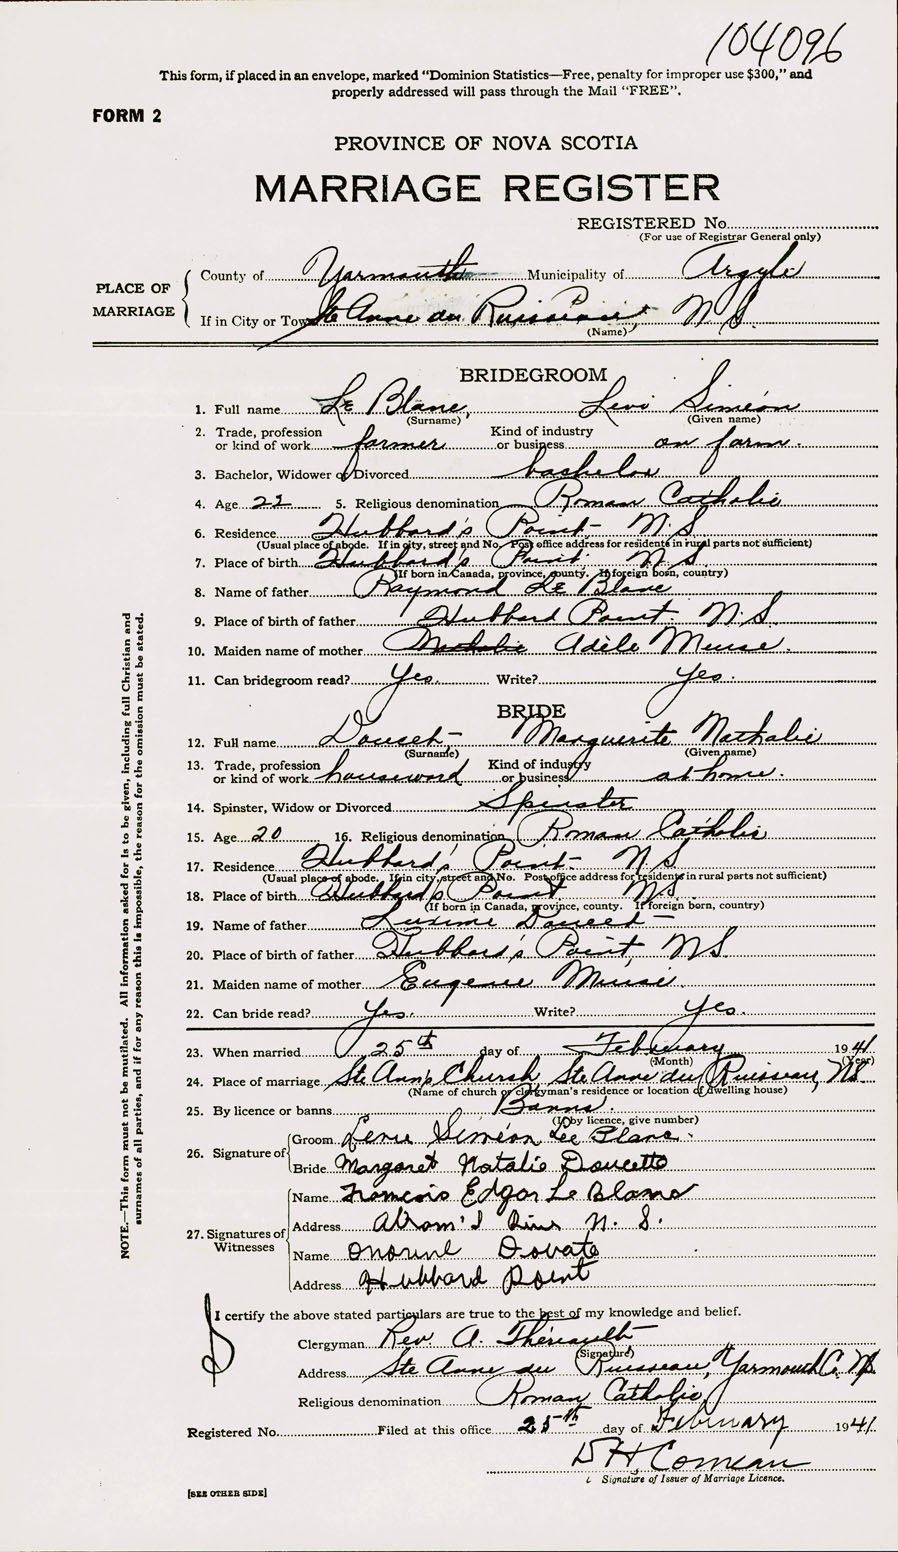 104096
This form, if placed in an envelope, marked "Dominion Statistics—Free, penalty for improper use $300," and
properly addressed will pass through the Mail "FREE".
FORM 2
PROVINCE OF NOVA SCOTIA
MARRIAGE REGISTER
REGISTERED No.
(For use of Registrar General only)
PLACE OF MARRIAGE
County of Yarmouth Municipality of Argyle
If in City or Town Ste Anne du Ruisseau, N.S.
(Name)
BRIDEGROOM
1. Full name Le Blanc, Levi Siméon
(Surname) (Given name)
2. Trade, profession or kind of work farmer Kind of industry or business on farm.
3. Bachelor, Widower or Divorced bachelor
4. Age 22 5. Religious denomination Roman Catholic
6. Residence Hubbard's Point N.S.
(Usual place of abode. If in city, street and No. Post office address for residents in rural parts not sufficient)
7. Place of birth Hubbard's Point, N.S.
(If born in Canada, province, county. If foreign born, country)
8. Name of father Raymond Le Blanc
9. Place of birth of father Hubbard Point. N.S.
10. Maiden name of mother Adèle Muise.
11. Can bridegroom read? Yes. Write? Yes.
BRIDE
12. Full name Doucet Marguerite Nathalie
(Surname) (Given name)
13. Trade, profession or kind of work housework Kind of industry or business at home.
14. Spinster, Widow or Divorced Spinster
15. Age 20 16. Religious denomination Roman Catholic
17. Residence Hubbard's Point N.S.
(Usual place of abode. If in city, street and No. Post office address for residents in rural parts not sufficient)
18. Place of birth Hubbard's Point N.S.
(If born in Canada, province, county. If foreign born, country)
19. Name of father Doucet
20. Place of birth of father Hubbard's Point, N.S.
21. Maiden name of mother Eugenie Muise.
22. Can bride read? Yes. Write? Yes.
23. When married 25th day of February 1941
(Month) (Year)
24. Place of marriage Ste Ann's Church Ste Anne du Ruisseau, N.S.
(Name of church or clergyman's residence or location of dwelling house)
25. By licence or banns Banns.
(If by licence, give number)
26. Signature of
Groom Siméon Lee Blanc.
Bride Margaret Natalie Doucette
27. Signatures of Witnesses
Name Francois Edgar Le Blanc
Address N. S.
Name
Address Hubbard Point
I certify the above stated particulars are true to the best of my knowledge and belief.
Clergyman Rev. A. Thériault
(Signature)
Address Ste Anne du Ruisseau, Yarmouth Co. N.S.
Religious denomination Roman Catholic
Registered No. Filed at this office 25th day of February 1941
D H Comeau
Signature of Issuer of Marriage Licence.
[SEE OTHER SIDE]
NOTE.—This form must not be mutilated. All information asked for is to be given, including full Christian and
surnames of all parties, and if for any reason this is impossible, the reason for the omission must be stated.